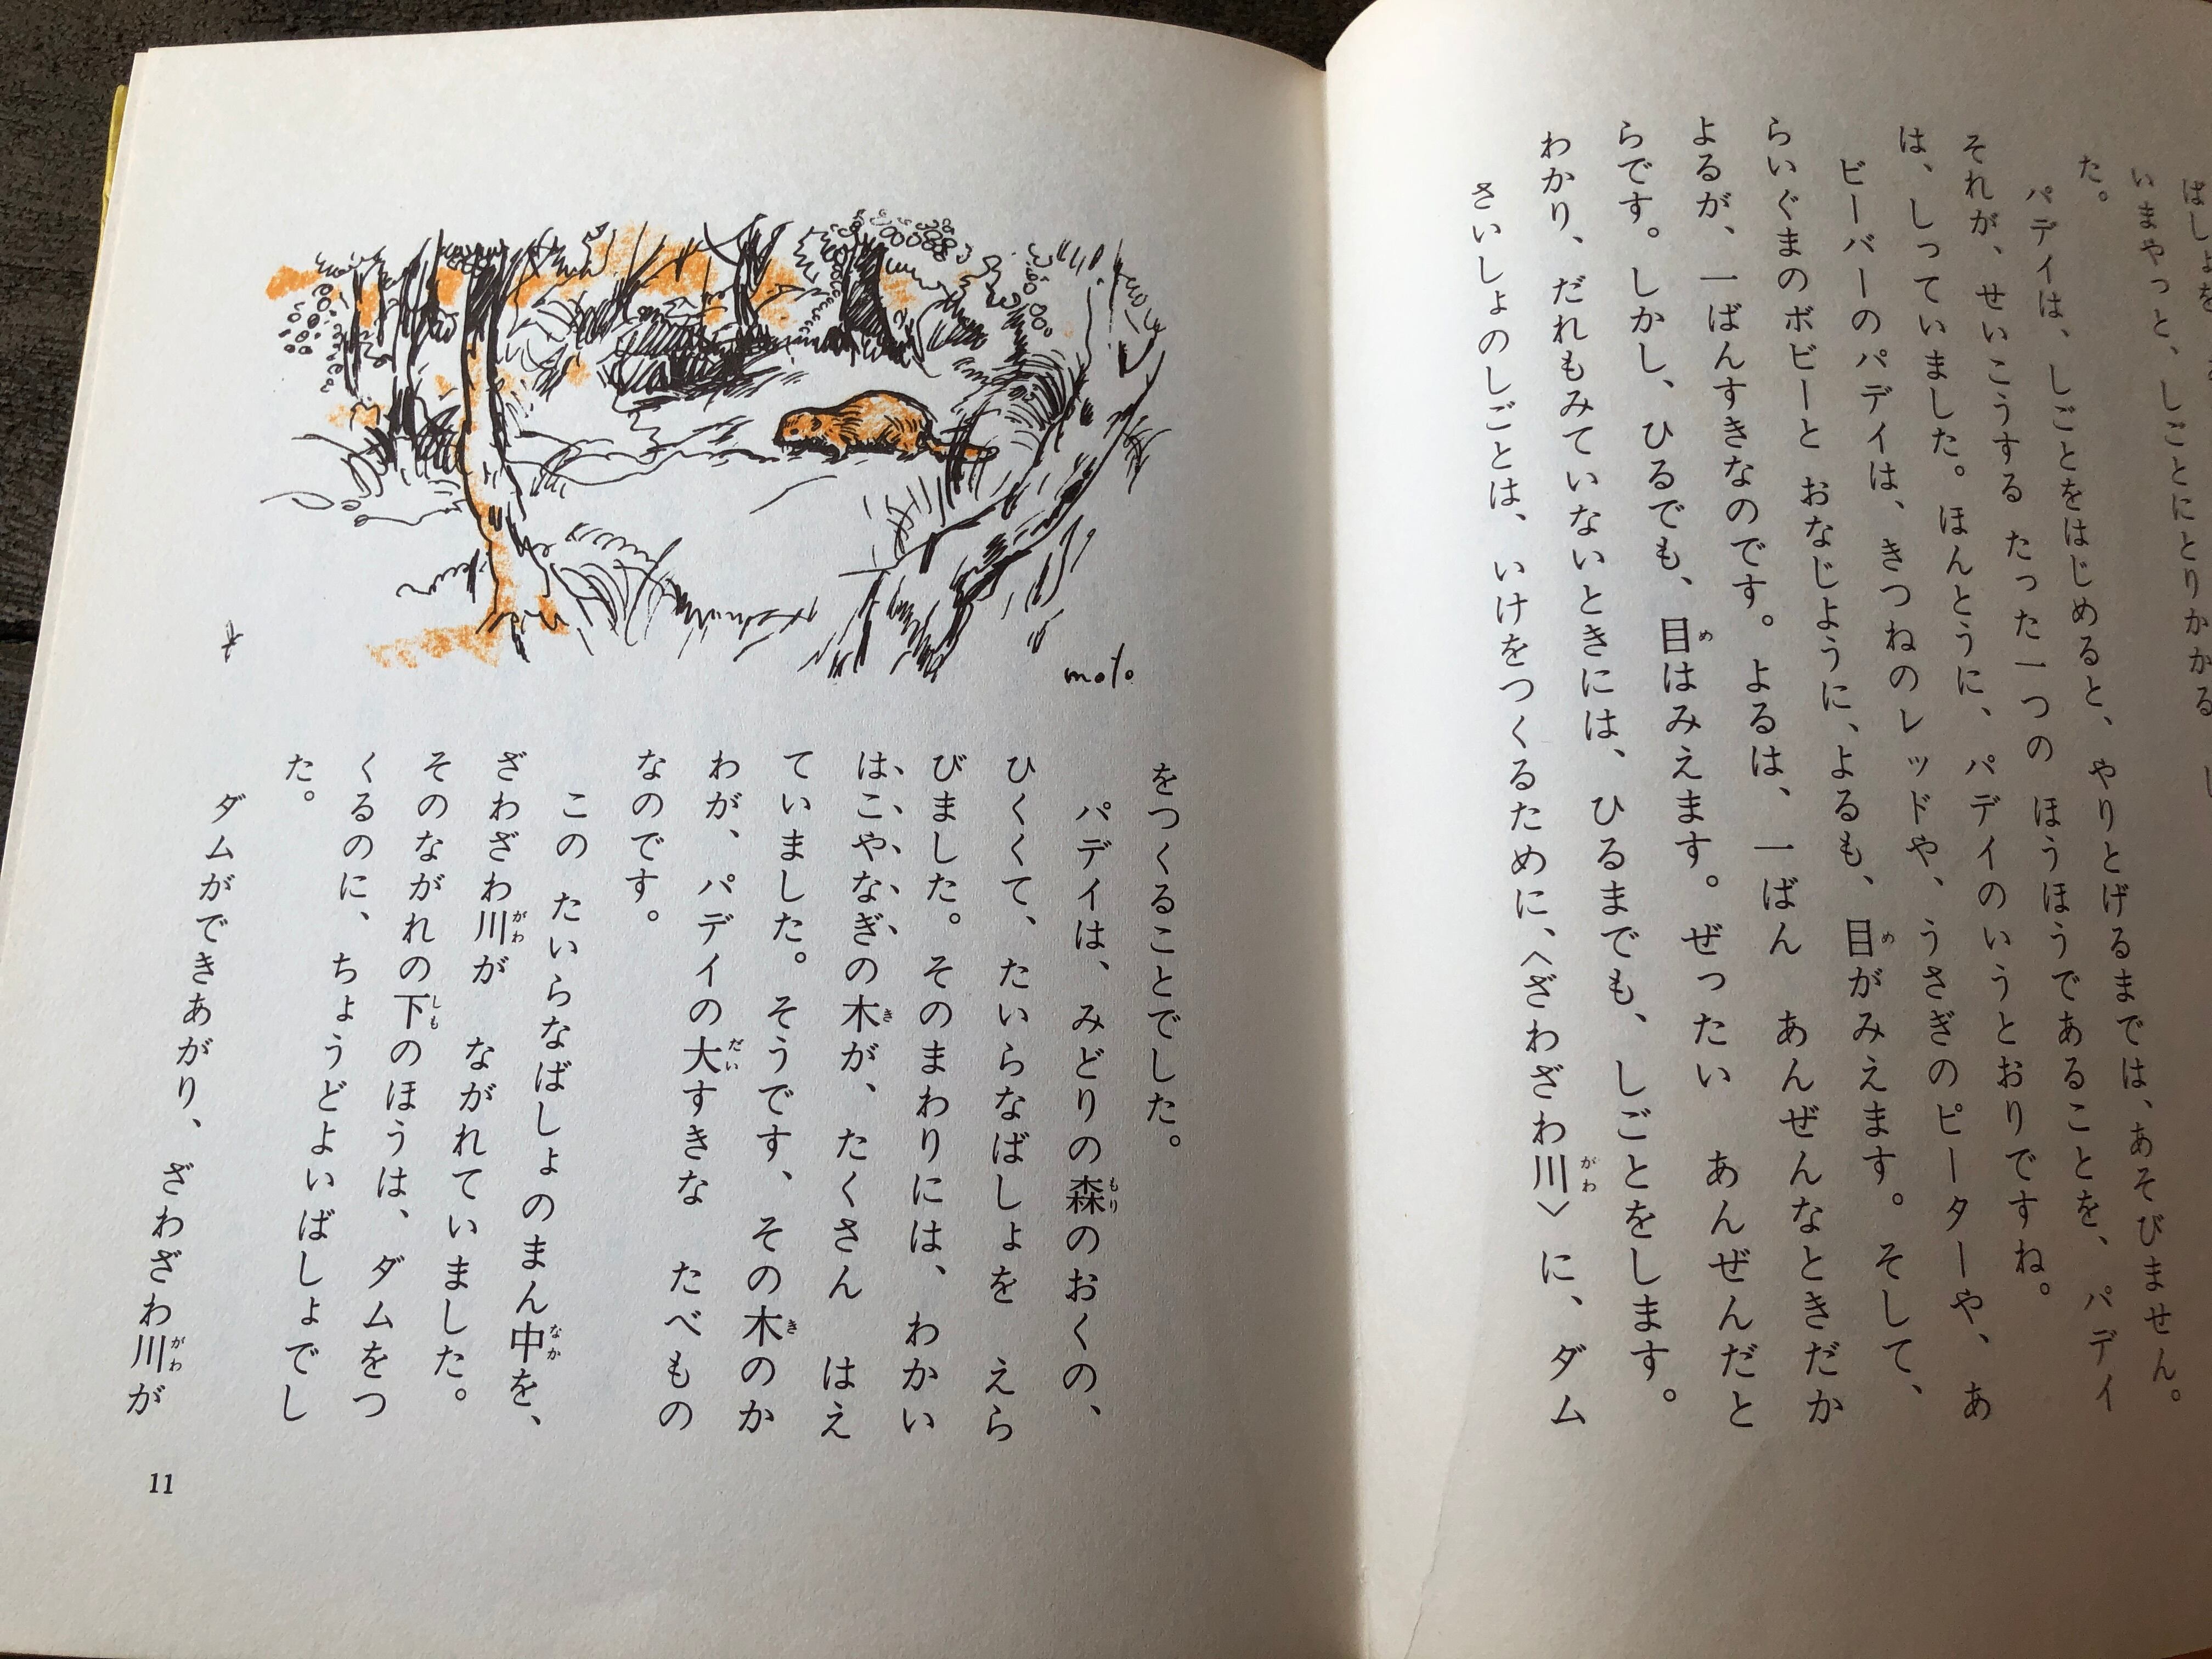 ばしょを
いまやっと、しごとにとりかかる
た。
パデイは、しごとをはじめると、やりとげるまでは、あそびません。
それが、せいこうする たった一つの ほうほうであることを、パデイ
は、しっていました。ほんとうに、パデイのいうとおりですね。
ビーバーのパデイは、きつねのレッドや、うさぎのピーターや、あ
らいぐまのボビーと おなじように、よるも、目がみえます。そして、
よるが、一ばんすきなのです。よるは、一ばん あんぜんなときだか
らです。しかし、ひるでも、目はみえます。ぜったい あんぜんだと
わかり、だれもみていないときには、ひるまでも、しごとをします。
さいしょのしごとは、いけをつくるために、〈ざわざわ川〉に、ダム
をつくることでした。
パデイは、みどりの森のおくの、
ひくくて、たいらなばしょを えら
びました。そのまわりには、わかい
はこやなぎの木が、たくさん はえ
ていました。そうです、その木のか
わが、パデイの大すきな たべもの
なのです。
この たいらなばしょのまん中を、
ざわざわ川が ながれていました。
そのながれの下のほうは、ダムをつ
くるのに、ちょうどよいばしょでし
た。
ダムができあがり、ざわざわ川が
moto
11